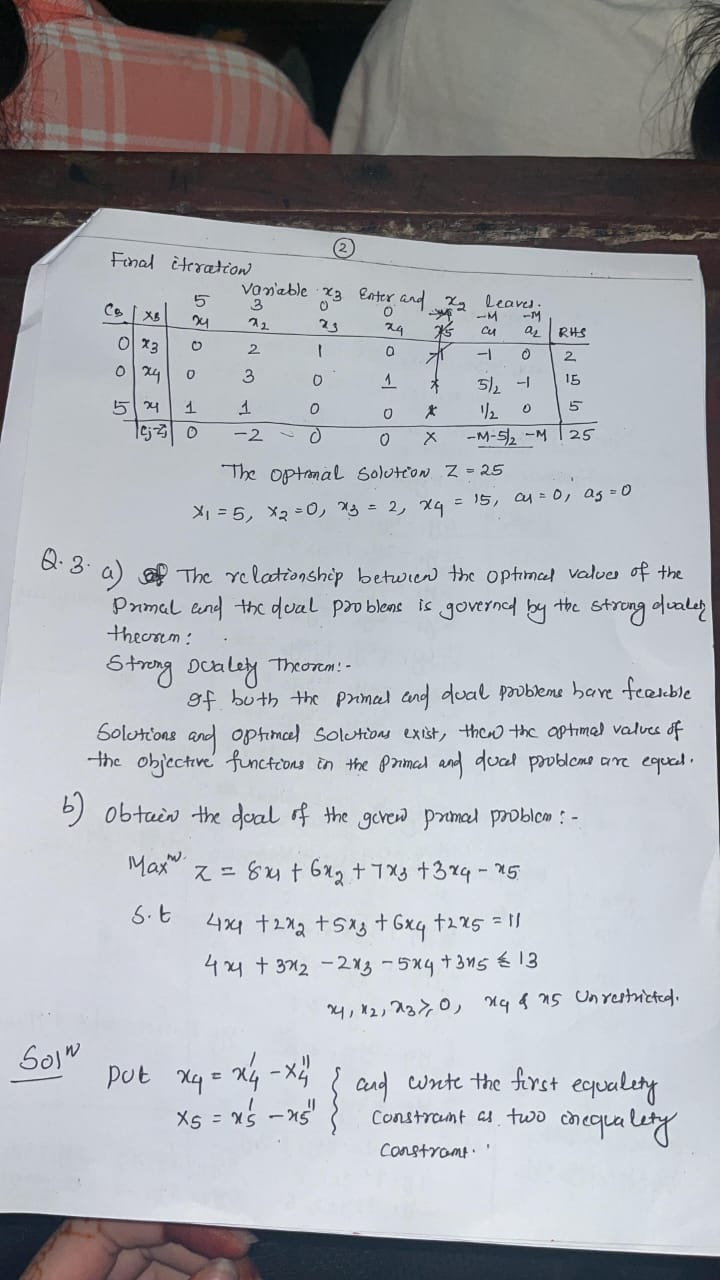 ②
Final iteration
Variable x₃ Enter and x₂ leaves.
5 3 0 0 -M -M
C_B X_B x₁ x₂ x₃ x₄ x₅ a₁ a₂ RHS
0 x₃ 0 2 1 0 -1 0 2
0 x₄ 0 3 0 1 5/2 -1 15
5 x₁ 1 1 0 0 1/2 0 5
Cj-Zj 0 -2 0 0 X -M-5/2 -M 25
The optimal solution Z = 25
x₁ = 5, x₂ = 0, x₃ = 2, x₄ = 15, a₁ = 0, a₅ = 0
Q.3. a) The relationship between the optimal values of the
Primal and the dual problems is governed by the strong duality
theorem :
Strong Duality Theorem:-
If both the primal and dual problems have feasible
Solutions and optimal solutions exist, then the optimal values of
the objective functions in the primal and dual problems are equal.
b) Obtain the dual of the given primal problem :-
Maxⁿ. Z = 8x₁ + 6x₂ + 7x₃ + 3x₄ - x₅
S.t 4x₁ + 2x₂ + 5x₃ + 6x₄ + 2x₅ = 11
4x₁ + 3x₂ - 2x₃ - 5x₄ + 3x₅ ≤ 13
x₁, x₂, x₃ ≥ 0, x₄ & x₅ Unrestricted.
Solⁿ put x₄ = x₄' - x₄'' } and write the first equality
x₅ = x₅' - x₅'' } Constraint as two inequality
Constraint.